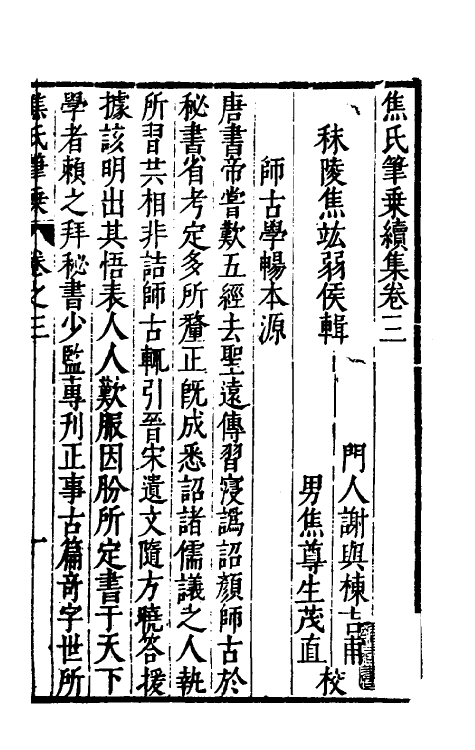 焦氏筆乗續集卷三
秣陵焦竑弱侯輯
門人謝與棟吉甫
男焦尊生茂直 校
師古學暢本源
唐書帝嘗歎五經去聖遠傳習寖譌詔顔師古於
秘書省考定多所釐正旣成悉詔諸儒議之人執
所習共相非詰師古輒引晉宋遺文隨方曉答援
據該明出其悟表人人歎服因頒所定書于天下
學者賴之拜秘書少監專刊正事古篇奇字世所
焦氏筆乗 卷之三 一